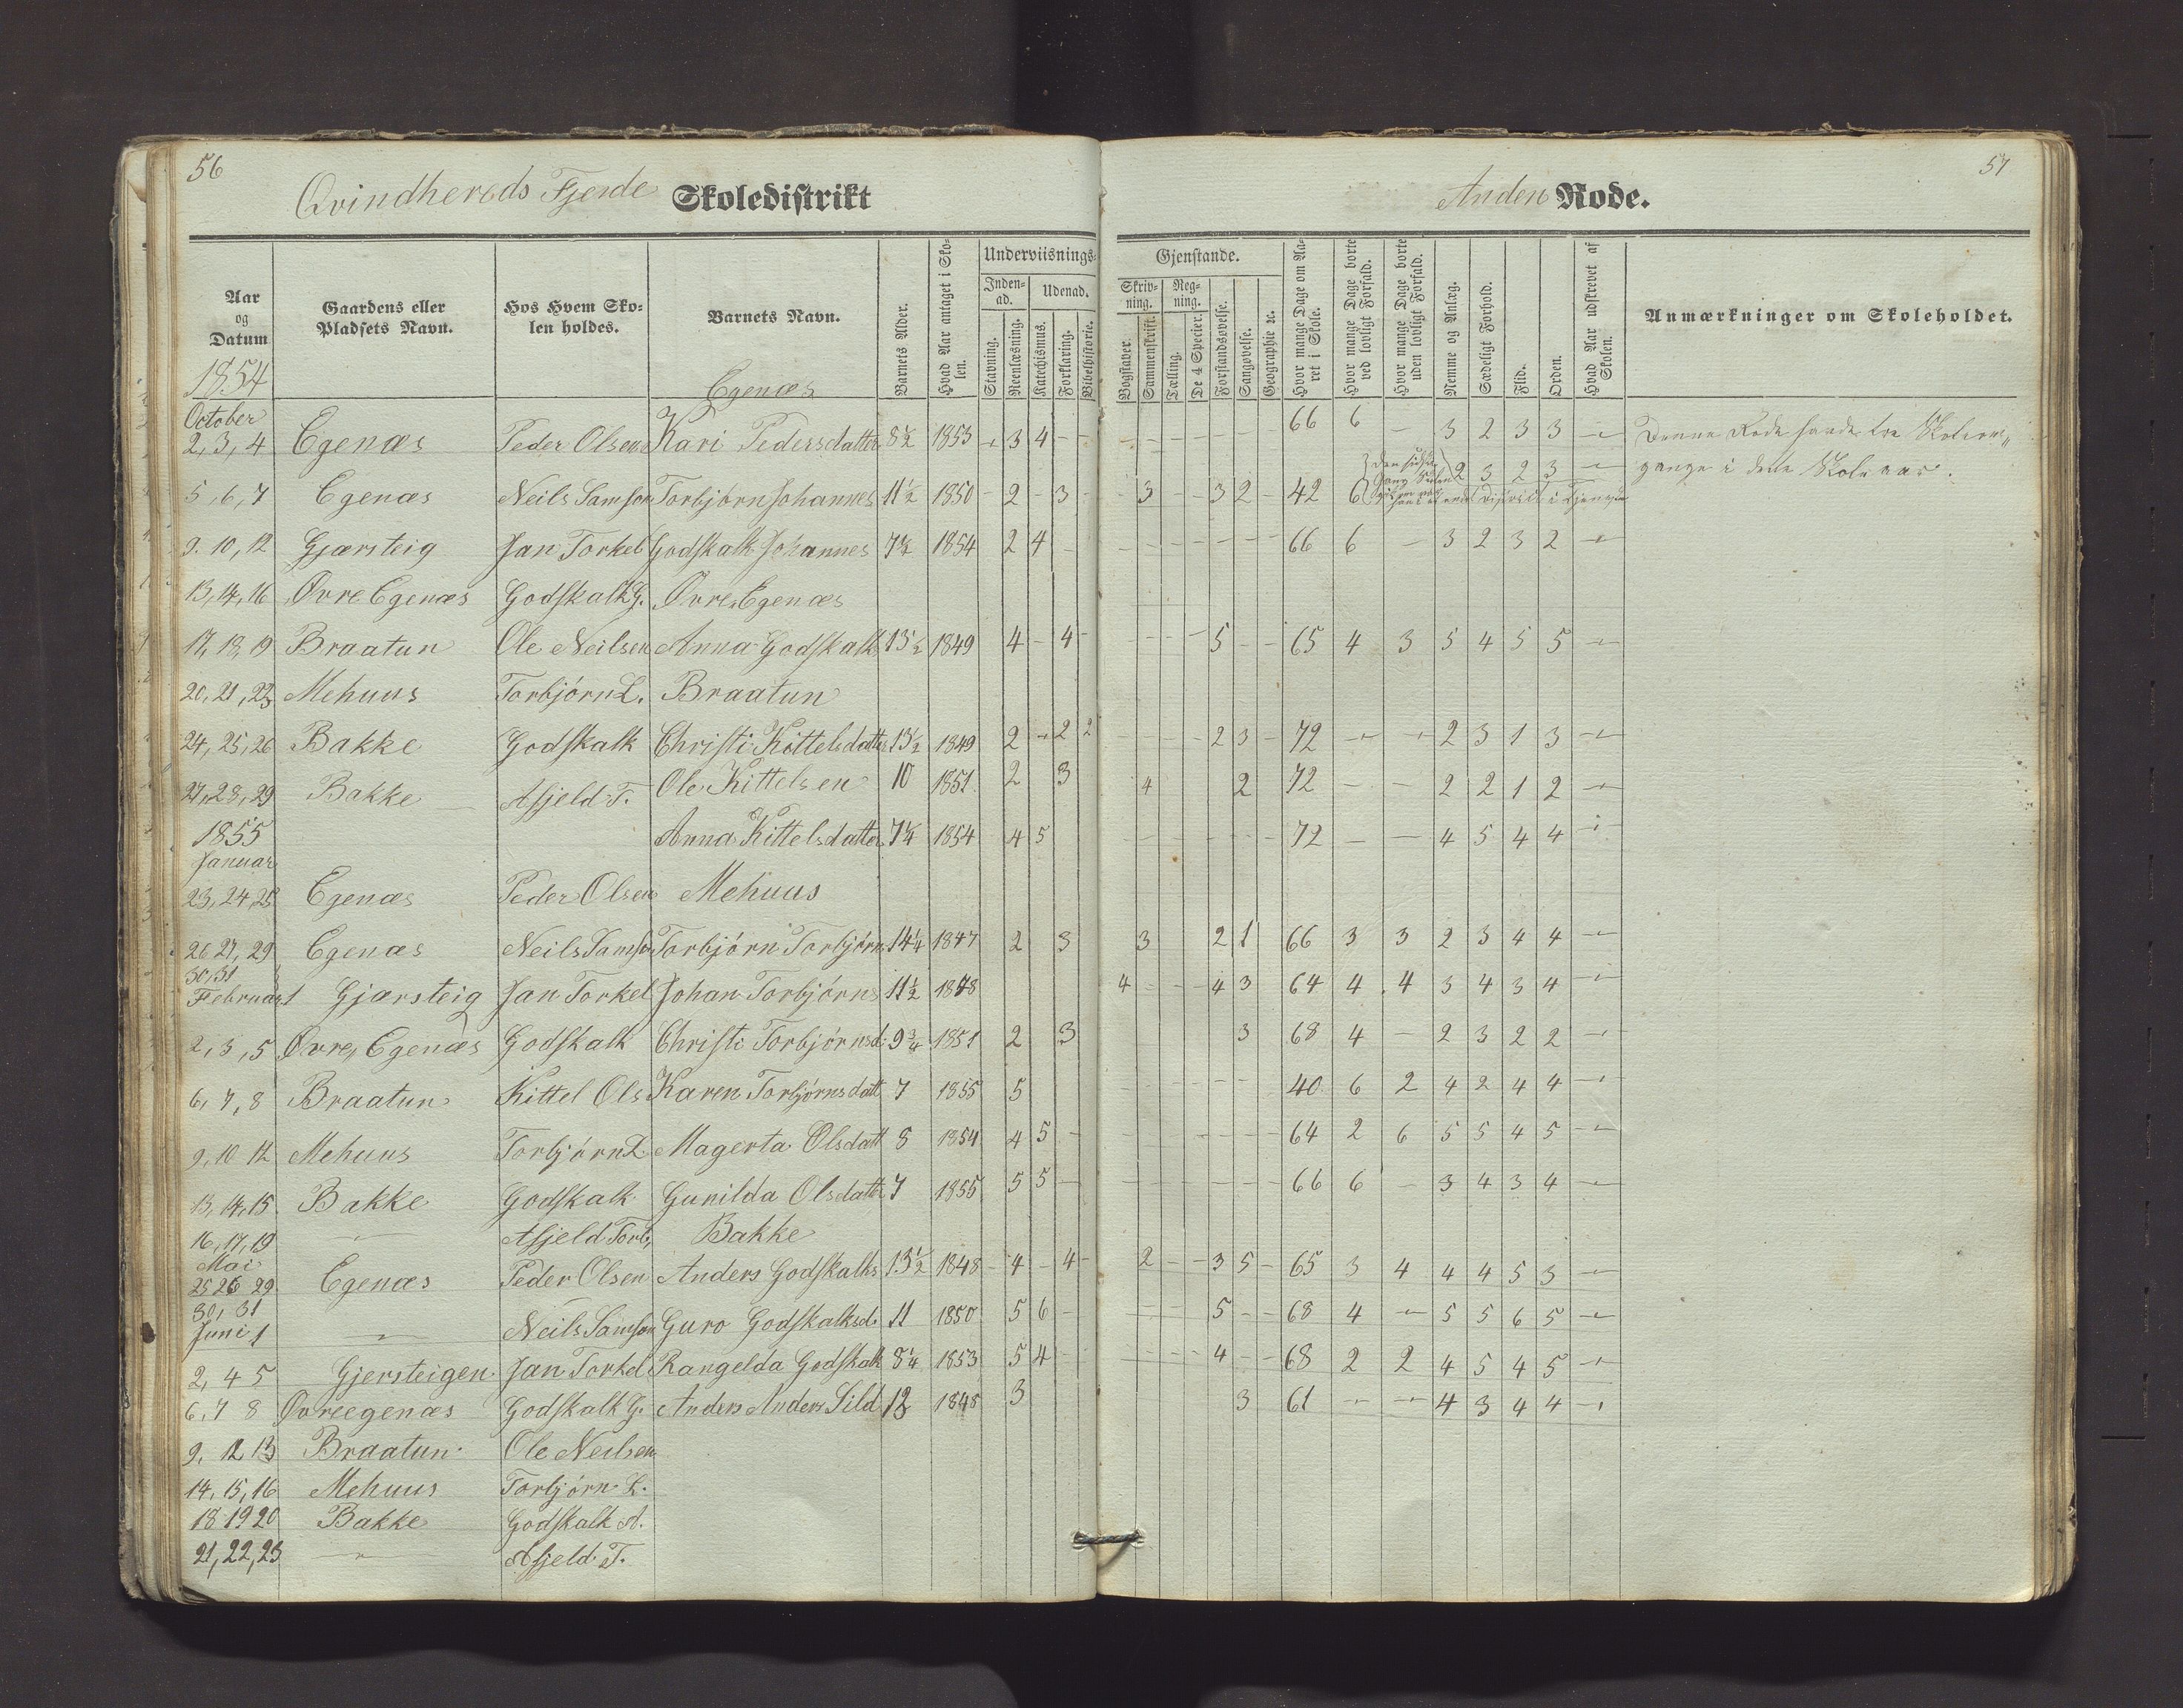 56
Qvindherods Fjerde Skoledistrikt
Aar og Datum
Gaardens eller Pladsets Navn.
Hos Hvem Skolen holdes.
Barnets Navn.
Barnets Alder.
Hvad Aar antaget i Skolen.
Underviisnings-
Indenad.
Udenad.
Stavning.
Reenlæsning.
Katechismus.
Forklaring.
Bibelhistorie.
1854
Egenæs
October
2, 3, 4 Egenæs Peder Olsen Kari Pedersdatter 8½ 1853 - 3 4 - -
5, 6, 7 Egenæs Neils Samson Torbjørn Johannes 11½ 1850 - 2 - 3 -
9. 10, 12 Gjærsteig Jan Torkel Godskalk Johannes 7½ 1854 2 4 -
13, 14, 16 Øvre Egenæs Godskalk G. Øvre Egenæs
17, 18, 19 Braatun Ole Neilsen Anna Godskalk 13½ 1849 4 - 4 -
20, 21, 23 Mehuus Torbjørn L. Braatun
24, 25, 26 Bakke Godskalk Christi Kittelsdatter 13½ 1849 2 - 2 2
27, 28, 29 Bakke Asjeld T. Ole Kittelsen 10 1851 2 3
1855 Anna Kittelsdatter 7¼ 1854 4 5
Januar
23, 24, 25 Egenæs Peder Olsen Mehuus
26 27, 29 Egenæs Neils Samson Torbjørn Torbjørns 14¼ 1847 2 3
30, 31
Februar 1 Gjærsteig Jan Torkel Johan Torbjørns 11½ 1848
2, 3, 5 Øvre Egenæs Godskalk Christi Torbjørnsd. 9¾ 1851 2 3
6, 7, 8 Braatun Kittel Ols Karen Torbjørnsdatt 7 1855 5
9, 10 12 Mehuus Torbjørn L Magerta Olsdatt 8 1854 4 5 -
13, 14, 15 Bakke Godskalk Gunilda Olsdatt 7 1855 5 5 -
16, 17, 19 - Asjeld Torb, Bakke
Mai
25 26 29 Egenæs Peder Olsen Anders Godskalks 13½ 1848 - 4 - 4 -
30, 31
Juni 1 - Neils Samson Guro Godskalksd. 11 1850 5 6 -
2, 4 5 Gjersteigen Jan Torkel Rangelda Godskalk 8¼ 1853 5 4 -
6, 7 8 Øvreegenæs Godskalk G. Anders Anders Sild 12 1848 3
9, 12 13 Braatun Ole Neilsen
14, 15, 16 Mehuus Torbjørn L.
18 19 20 Bakke Godskalk A.
21, 22, 23 - Asjeld T.
57
Anden Rode.
Gjenstande.
Skrivning.
Regning.
Bogstaver.
Sammenskrift.
Tælling.
De 4 Specier.
Forstandsøvelse.
Sangøvelse.
Geographie ꝛc.
Hvor mange Dage om Aaret i Skole.
Hvor mange Dage borte ved lovligt Forfald.
Hvor mange Dage borte uden lovligt Forfald.
Nemme og Anlæg.
Sædeligt Forhold.
Flid.
Orden.
Hvad Aar udskrevet af Skolen.
Anmærkninger om Skoleholdet.
- - - - - - - 66 6 - 3 2 3 3 - Denne Rode havde tre Skoleom„
gange i dette Skoleaar.
- 3 - - 3 2 - 42 6 2 3 2 3 -
- - - - - - - 66 6 - 3 2 3 2 -
- - - - 5 - - 65 4 3 5 4 5 5 -
- - - - 2 3 - 72 - - 2 3 1 3 -
4 2 72 - - 2 2 1 2 -
- - - - - - - 72 - - 4 5 4 4 -
3 2 1 66 3 3 2 3 4 4 -
4 - - - 4 3 64 4 4 3 4 3 4 -
3 68 4 - 2 3 2 2 -
- - - - - - 40 6 2 4 2 4 4 -
- - - - - - - 64 2 6 5 5 4 5 -
- - - - - - - 66 6 - 3 4 3 4 -
2 - - 3 5 - 65 3 4 4 4 5 3 -
- - 5 - - 68 4 - 5 5 6 5 -
- - - - 4 - - 68 2 2 4 5 4 5 -
3 61 - - 4 3 4 4 -